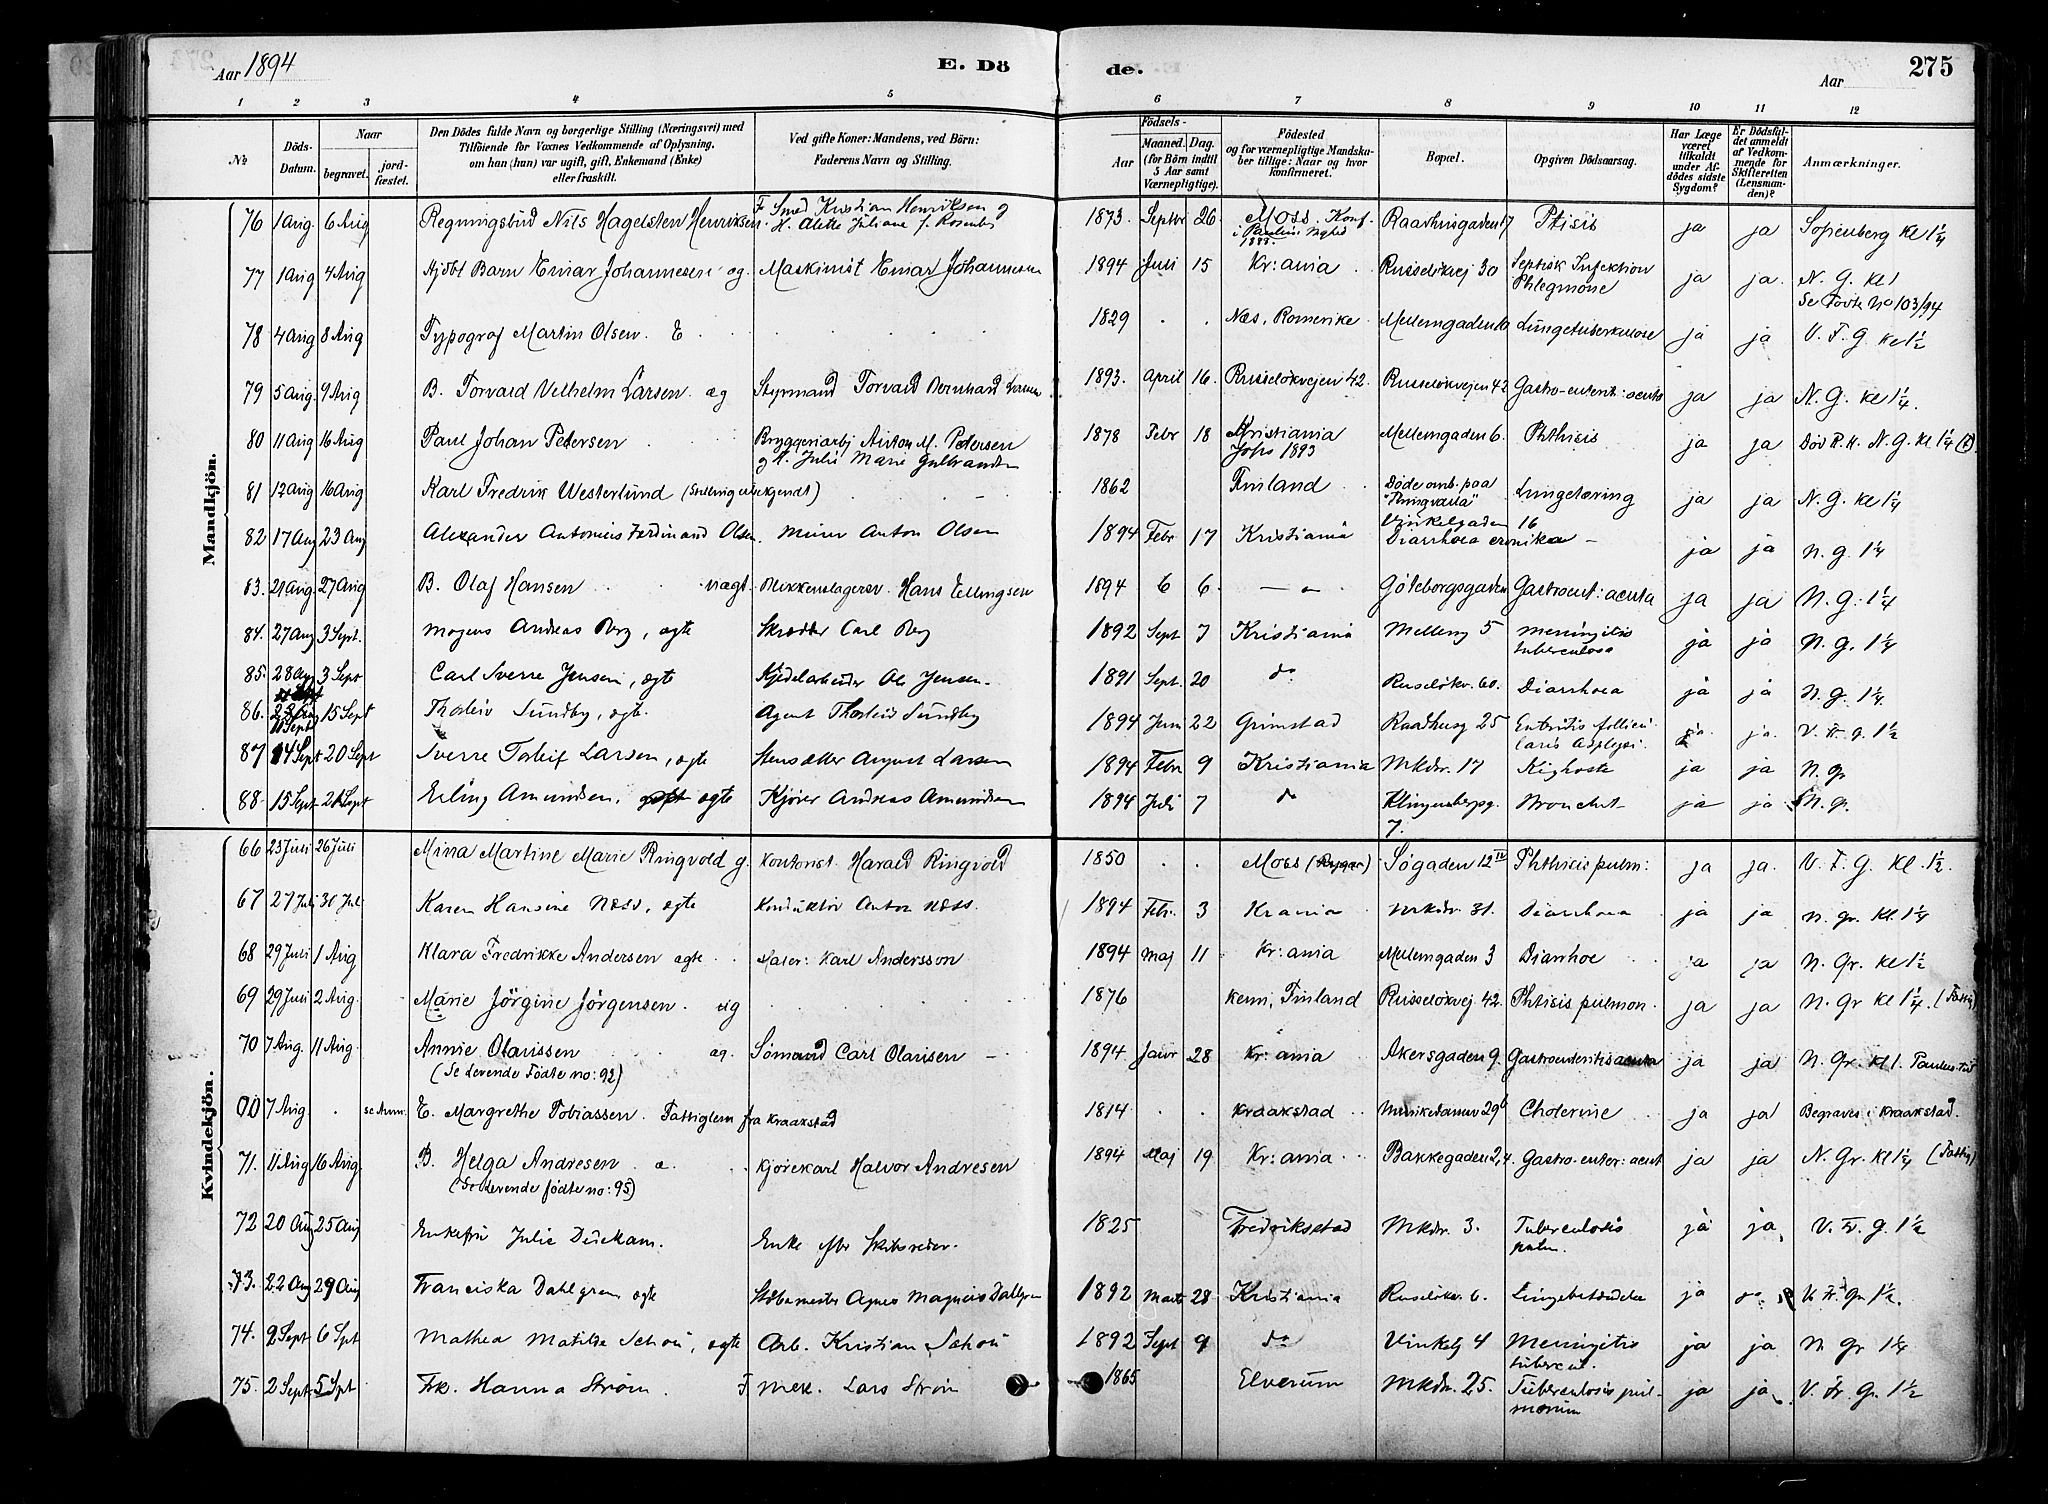 Aar 1894 E. Dö de. Aar 275
1 2 3 4 5 6 7 8 9 10 11 12
No Döds-Datum. Naar begravet. jord-fæstet. Den Dödes fulde Navn og borgerlige Stilling (Næringsvei) med Tilföiende for Voxnes Vedkommende af Oplysning, om han (hun) var ugift, gift, Enkemand (Enke) eller fraskilt. Ved gifte Koner: Mandens, ved Börn: Faderens Navn og Stilling. Födsels- Aar Maaned. Dag. (for Börn indtil 5 Aar samt Værnepligtige). Födested og for værnepligtige Mandskaber tillige: Naar og hvor konfirmeret. Bopæl. Opgiven Dödsaarsag. Har Læge været tilkaldt under Afdödes sidste Sygdom? Er Dödsfaldet anmeldt af Vedkommende for Skifteretten (Lensmanden)? Anmærkninger.
Mandkjön.
76 1 Aug. 6 Aug Regningsbud Nils Hagelsten Henriksen F. Smed Kristian Henriksen og H. Alette Juliane f. 1873. Septbr 26 Moss. Konf. i Paulus Raadhusgaden 17 Ptisis ja ja Sofienberg Kl 1 1/4
77 1 Aug 4 Aug Hjdbt Barn Einar Johannesen æg. Maskinist Einar Johannesen 1894 Juli 15 Kr:ania Russeløkvej 30 Septisk Infektion Phlegmone ja ja. N. G. Kl 1 Se Fødte No 103/94
78 4 Aug 8 Aug Typograf Martin Olsen. E. 1829 Næs, Romerike Mellemgaden 10 Lungetuberkulose ja ja V. F. G. Kl 1 1/2
79 5 Aug. 9 Aug B. Torvald Vilhelm Larsen. æg Styrmand Torvald Bernhard Larsen 1893. April 16. Russeløkvejen 42. Russeløkvejen 42 Gastro-enterit: acuta ja ja N. G. Kl 1 1/4.
80 11 Aug 16 Aug Paul Johan Petersen Bryggeriarbj Anton M. Petersen og H. Julie Marie Gulbrandsen 1878 Febr 18 Kristiania Johs 1893 Mellemgaden 6. Phthisis ja ja Död R. H. N. G. Kl 1 1/4
81 12 Aug 16 Aug Karl Fredrik Westerlund (Stilling ubekjendt) 1862 Finland Døde omb. paa "Ringvalla" Lungetæring ja ja N. G. Kl 1 1/4
82 17 Aug 23 Aug Alexander Antonius Ferdinand Olsen. Murer Anton Olsen 1894 Febr 17 Kristiania Vinkelgaden 16 Diarrhoea cronika ja ja N. G. 1 1/4
83. 21 Aug. 27 Aug B. Olaf Hansen uægt. Blikkenslagersv. Hans Ellingsen 1894 6 6. Göteborgsgaden Gastroent: acuta ja ja N. G: 1 1/4
84. 27 Aug 3 Sept. Mogens Andreas Berg, ægte Skrædder Carl Berg 1892 Sept 7 Kristiania Mellemg 5 Meningitis tuberculosa ja ja N. G. 1 1/4
85. 28 Aug 3 Sept Carl Sverre Jensen, ægte Kjedelarbeider Ole Jensen. 1891 Sept. 20 do Ruseløkv. 60. Diarrhoea ja ja N. G. 1 1/4.
86. 11 Sept 15 Sept Thorleiv Sundby, ægte. Agent Thorleiv Sundby 1894 Juni 22 Grimstad Raadhusg 25 Enteritis follicularis ja. ja. V. Fr. G. 1 1/2
87 14 Sept 20 Sept Sverre Torleif Larsen, ægte Stensætter August Larsen 1894 Febr 9 Kristiania Mkdr. 17 Kighoste ja ja N. Gr
88. 15 Sept 21 Sept Erling Amundsen, ægte Kjører Andreas Amundsen 1894 Juli 7 do Klingenbergg. 7. Bronchit ja ja N. Gr.
Kvindekjön.
66 23 Juli 26 Juli Mina Martine Marie Ringvold g. Kontorist. Harald Ringvold 1850 Moss Søgaden 12 IV Phthisis pulm: ja ja. V. F. G. Kl. 1 1/2.
67 27 Juli 31 Juli Karen Hansine Næss, ægte Konduktør Anton Næss. 1894 Febr. 3 Krania Mkdr. 31. Diarrhoea ja ja N. Gr. Kl. 1 1/4
68 29 Juli 1 Aug Klara Fredrikke Andersen ægte. Maler: Karl Andersson 1894 Maj 11 Kr:ania Mellemgaden 3 Diarrhoe ja ja N. Gr. Kl 1 1/2
69 29 Juli 2 Aug. Marie Jörgine Jörgensen. ug 1876 Kemi, Finland Russeløkvej 42. Phtisis pulmon. ja ja N. Gr Kl 1 1/4. (Fattig)
70 7 Aug. 11 Aug. Annie Olavssen æg. Sømand Carl Olavsen 1894 Janr 28 Kr:ania Akersgaden 9. Gastroenteritis acuta ja ja N. Gr. Kl 1.
(Se Levende Fødte no: 92)
00 7 Aug. se Anm. E. Margrethe Tobiassen. Fattiglem fra Kraakstad 1814 Kraakstad Munkedamsv 29b Cholerine ja ja Begraves i Kraakstad.
71. 11 Aug 16 Aug. B. Helga Andresen æ. Kjørekarl Halvor Andresen 1894 Maj 19 Kr:ania Bakkegaden 2,4. Gastro-enter: acut ja ja N. Gr. Kl 1 1/4 (Fattig)
(Se levende födte no: 95)
72 20 Aug 25 Aug Enkefru Julie Duckam. Enke efter Skibsreder. 1825 Fredriksstad Mkdr. 3. Tuberculosis pulm. ja ja V. Fr. G. 1 1/2
73. 22 Aug 29 Aug Franciska Dahlgren ægte Agnes Magnus Dahlgren 1892 Marts 28 Kristiania Ruseløkv. 6. Lungebetændelse ja do V. Fr. Gr. 1 1/2.
74. 2 Sept 6 Sept Mathea Matilde Schou, ægte Arb. Kristian Schou 1892 Sept 9 do Vinkelg 4 Meningitis tubercul. ja ja N. Gr 1 1/4
75. 2 Sept. 5 Sept Frk. Hanna Strøm. F Mek. Lars Strøm 1865 Elverum Mkdr. 25. Tuberculosis pulmonum ja ja V. Fr. Gr. 1 1/2